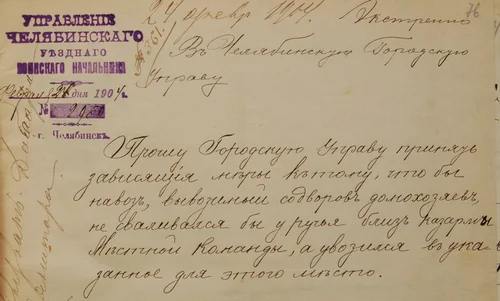 24 февр 1904. Экстренно
76
УПРАВЛЕНІЕ
ЧЕЛЯБИНСКАГО
УѢЗДНАГО
ВОИНСКАГО НАЧАЛЬНИКА
Февраля 24 дня 1904 г.
№
г. Челябинскъ.
Въ Челябинскую Городскую
Управу
Прошу Городскую Управу принять
зависящія мѣры къ тому, что бы
навозъ, вывозимый содворовъ домохозяевъ,
не сваливался бы у ручья близъ казармы
Мѣстной Команды, а увозился въ ука
занное для этого мѣсто.